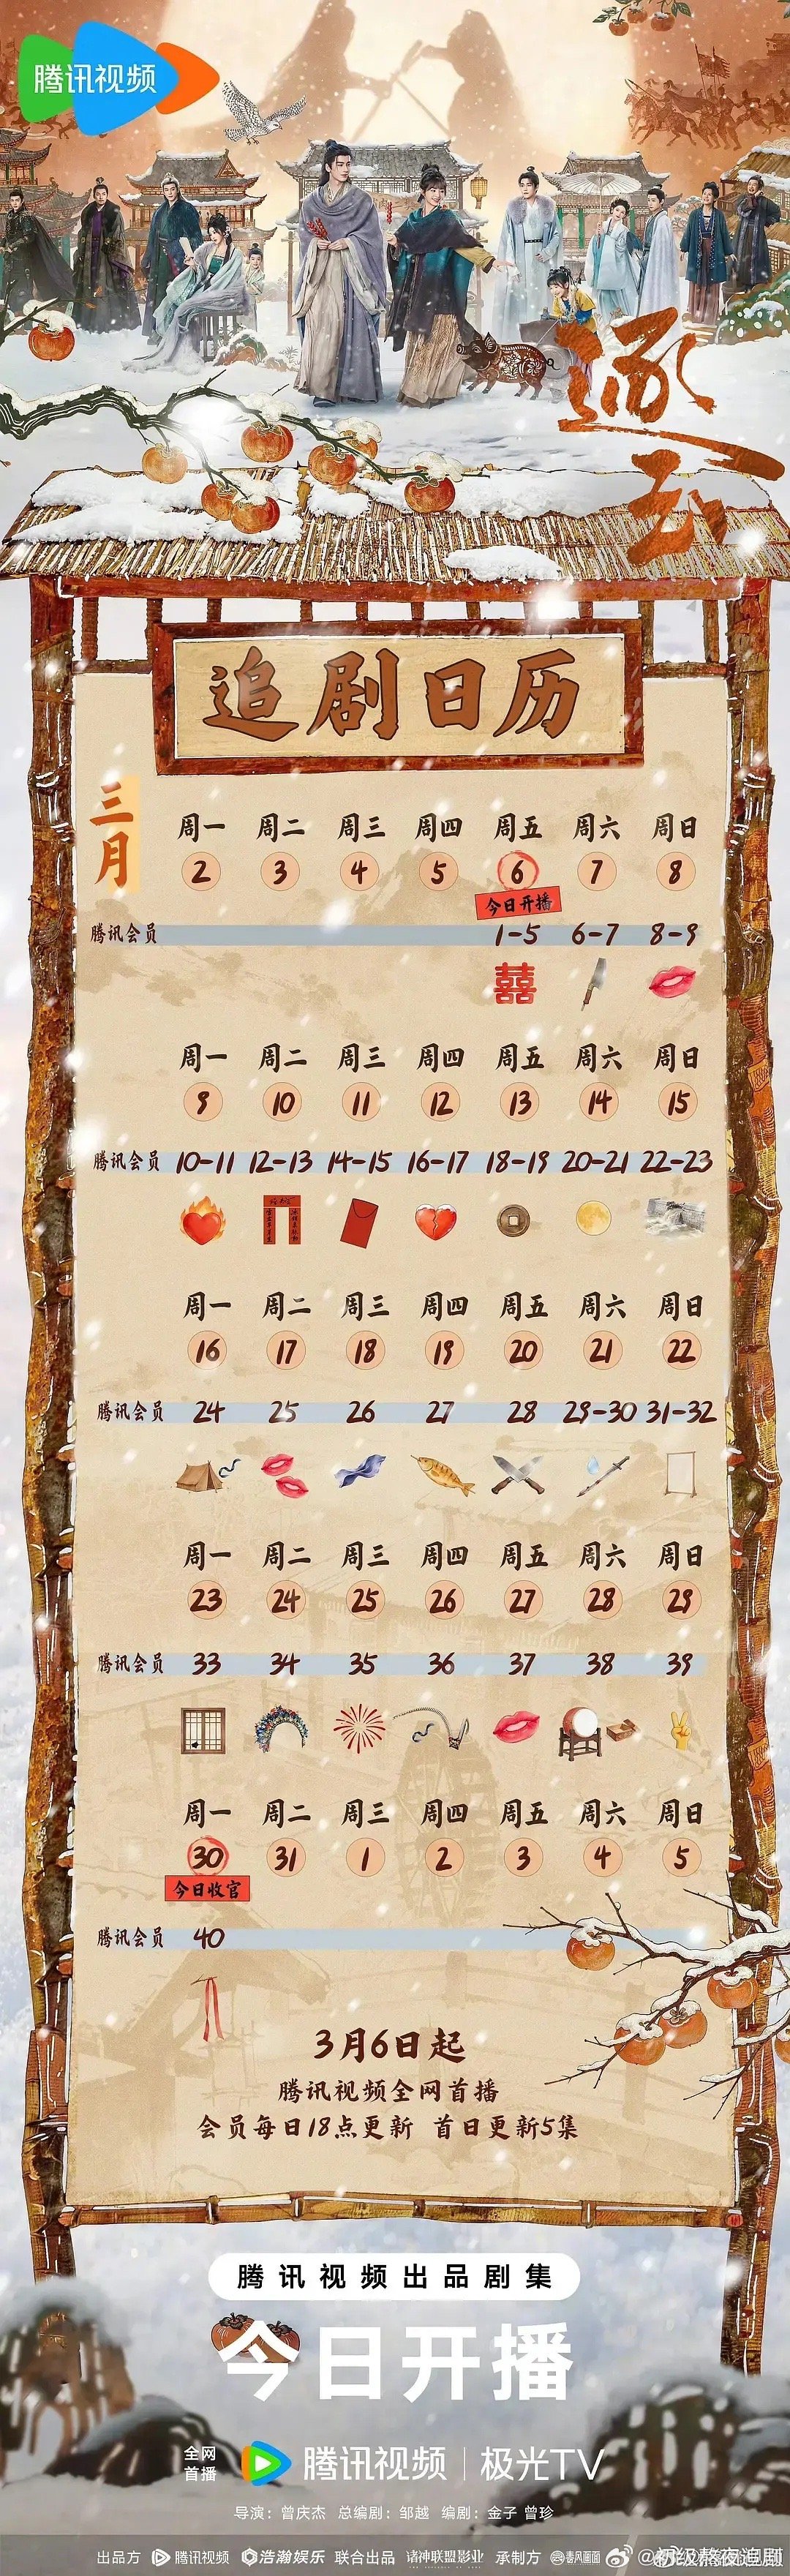 腾讯视频
逐玉
追剧日历
三月
周一 周二 周三 周四 周五 周六 周日
2 3 4 5 6 7 8
今日开播
腾讯会员 1-5 6-7 8-9
囍
周一 周二 周三 周四 周五 周六 周日
9 10 11 12 13 14 15
腾讯会员 10-11 12-13 14-15 16-17 18-19 20-21 22-23
周一 周二 周三 周四 周五 周六 周日
16 17 18 19 20 21 22
腾讯会员 24 25 26 27 28 29-30 31-32
周一 周二 周三 周四 周五 周六 周日
23 24 25 26 27 28 29
腾讯会员 33 34 35 36 37 38 39
周一 周二 周三 周四 周五 周六 周日
30 31 1 2 3 4 5
今日收官
腾讯会员 40
3月6日起
腾讯视频全网首播
会员每日18点更新 首日更新5集
腾讯视频出品剧集
今日开播
全网首播 腾讯视频 极光TV
导演：曾庆杰 总编剧：邹越 编剧：金子 曾珍
出品方 腾讯视频 浩瀚娱乐 联合出品 诸神联盟影业 承制方 春风画面 @初级熬夜追剧